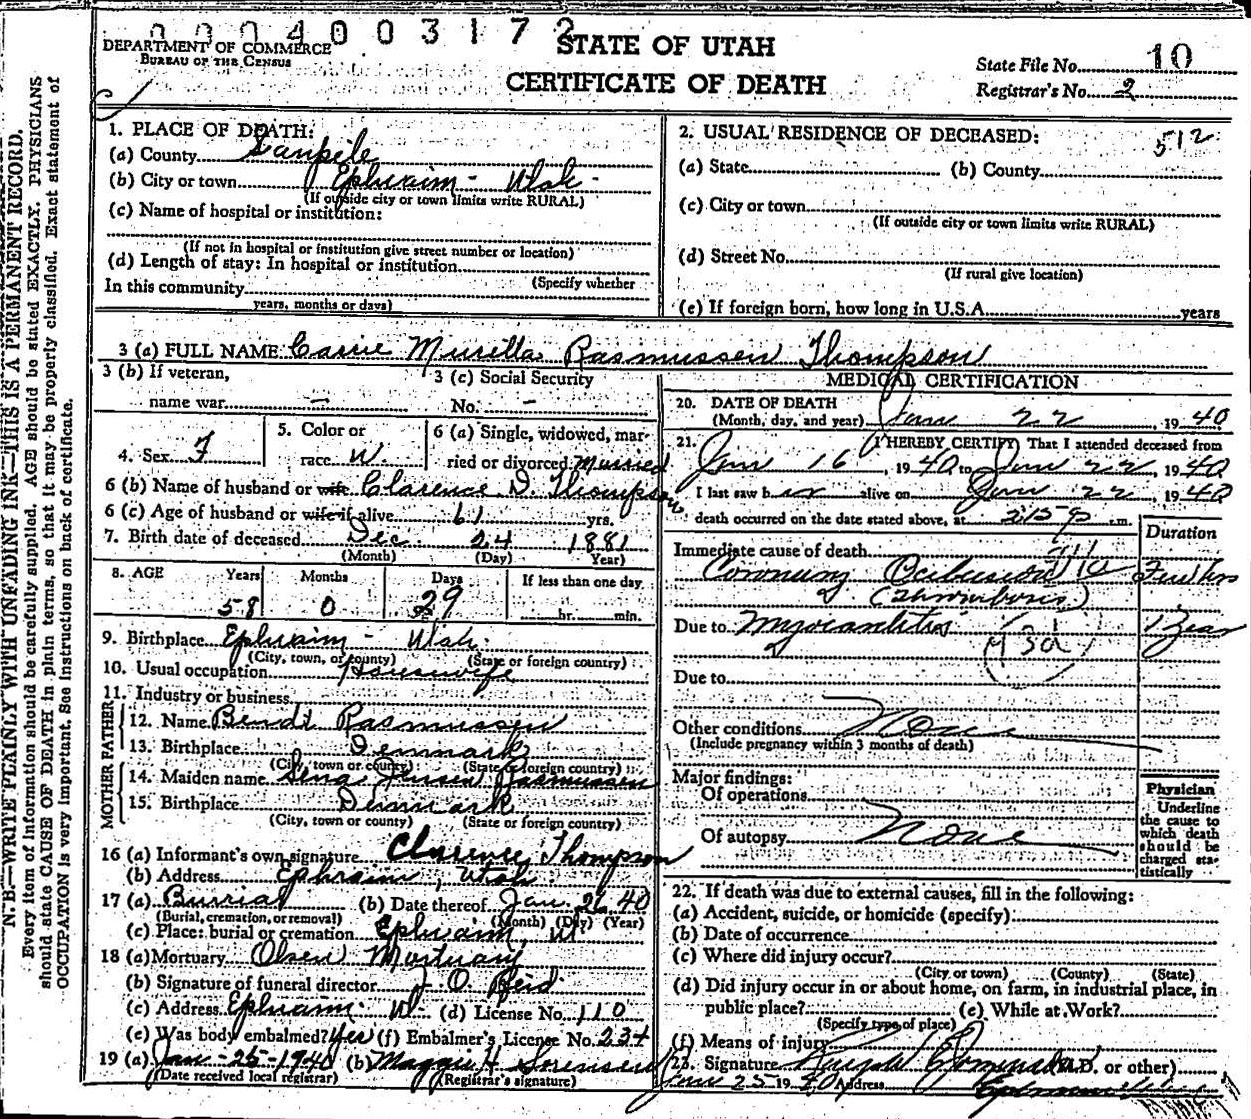 0004003172
DEPARTMENT OF COMMERCE
BUREAU OF THE CENSUS
STATE OF UTAH
CERTIFICATE OF DEATH
State File No. 10
Registrar's No. 2
N.B.—WRITE PLAINLY WITH UNFADING INK—THIS IS A PERMANENT RECORD.
Every item of information should be carefully supplied. AGE should be stated EXACTLY. PHYSICIANS
should state CAUSE OF DEATH in plain terms, so that it may be properly classified. Exact statement of
OCCUPATION is very important. See instructions on back of certificate.
1. PLACE OF DEATH:
(a) County Sanpete
(b) City or town Ephraim - Utah -
(If outside city or town limits write RURAL)
(c) Name of hospital or institution:
(If not in hospital or institution give street number or location)
(d) Length of stay: In hospital or institution
(Specify whether
In this community
years, months or days)
2. USUAL RESIDENCE OF DECEASED: 512
(a) State (b) County
(c) City or town
(If outside city or town limits write RURAL)
(d) Street No.
(If rural give location)
(e) If foreign born, how long in U.S.A. years
3 (a) FULL NAME Carrie Murilla Rasmussen Thompson
3 (b) If veteran, name war —
3 (c) Social Security No. —
4. Sex F
5. Color or race W.
6 (a) Single, widowed, married or divorced Married
6 (b) Name of husband or wife Clarence D. Thompson
6 (c) Age of husband or wife if alive 61 yrs.
7. Birth date of deceased Dec 24 1881
(Month) (Day) Year)
8. AGE Years Months Days If less than one day
58 0 29 hr. min.
9. Birthplace Ephraim - Utah.
(City, town, or county) (State or foreign country)
10. Usual occupation Housewife
11. Industry or business
FATHER
12. Name Bendt Rasmussen
13. Birthplace Denmark
(City, town or county) (State or foreign country)
MOTHER
14. Maiden name Sena Jensen Rasmussen
15. Birthplace Denmark
(City, town or county) (State or foreign country)
16 (a) Informant's own signature Clarence Thompson
(b) Address Ephraim, Utah
17 (a) Burial (b) Date thereof Jan. 26 40
(Burial, cremation, or removal) (Month) (Day) (Year)
(c) Place: burial or cremation Ephraim, Ut
18 (a) Mortuary Olsen Mortuary
(b) Signature of funeral director J. O. Reid
(c) Address Ephraim - Ut. (d) License No. 110
(e) Was body embalmed? Yes (f) Embalmer's License No. 234
19 (a) Jan - 25 - 1940 (b) Maggie H. Sorensen
(Date received local registrar) (Registrar's signature)
MEDICAL CERTIFICATION
20. DATE OF DEATH
(Month, day, and year) Jan 22, 1940
21. I HEREBY CERTIFY That I attended deceased from
Jan 16, 1940 to Jan 22, 1940
I last saw her alive on Jan 22, 1940
death occurred on the date stated above, at 2:15 P.m.
Duration
Immediate cause of death
Coronary Occlusion Few hrs
(Thrombosis)
Due to Myocarditis 1 Year
Due to
Other conditions None
(Include pregnancy within 3 months of death)
Major findings:
Of operations
Of autopsy None
Physician
Underline
the cause to
which death
should be
charged sta-
tistically
22. If death was due to external causes, fill in the following:
(a) Accident, suicide, or homicide (specify):
(b) Date of occurrence
(c) Where did injury occur?
(City or town) (County) (State)
(d) Did injury occur in or about home, on farm, in industrial place, in
public place? (e) While at Work?
(Specify type of place)
(f) Means of injury
23. Signature (M.D. or other)
Jan 25 1940 Address Ephraim Utah